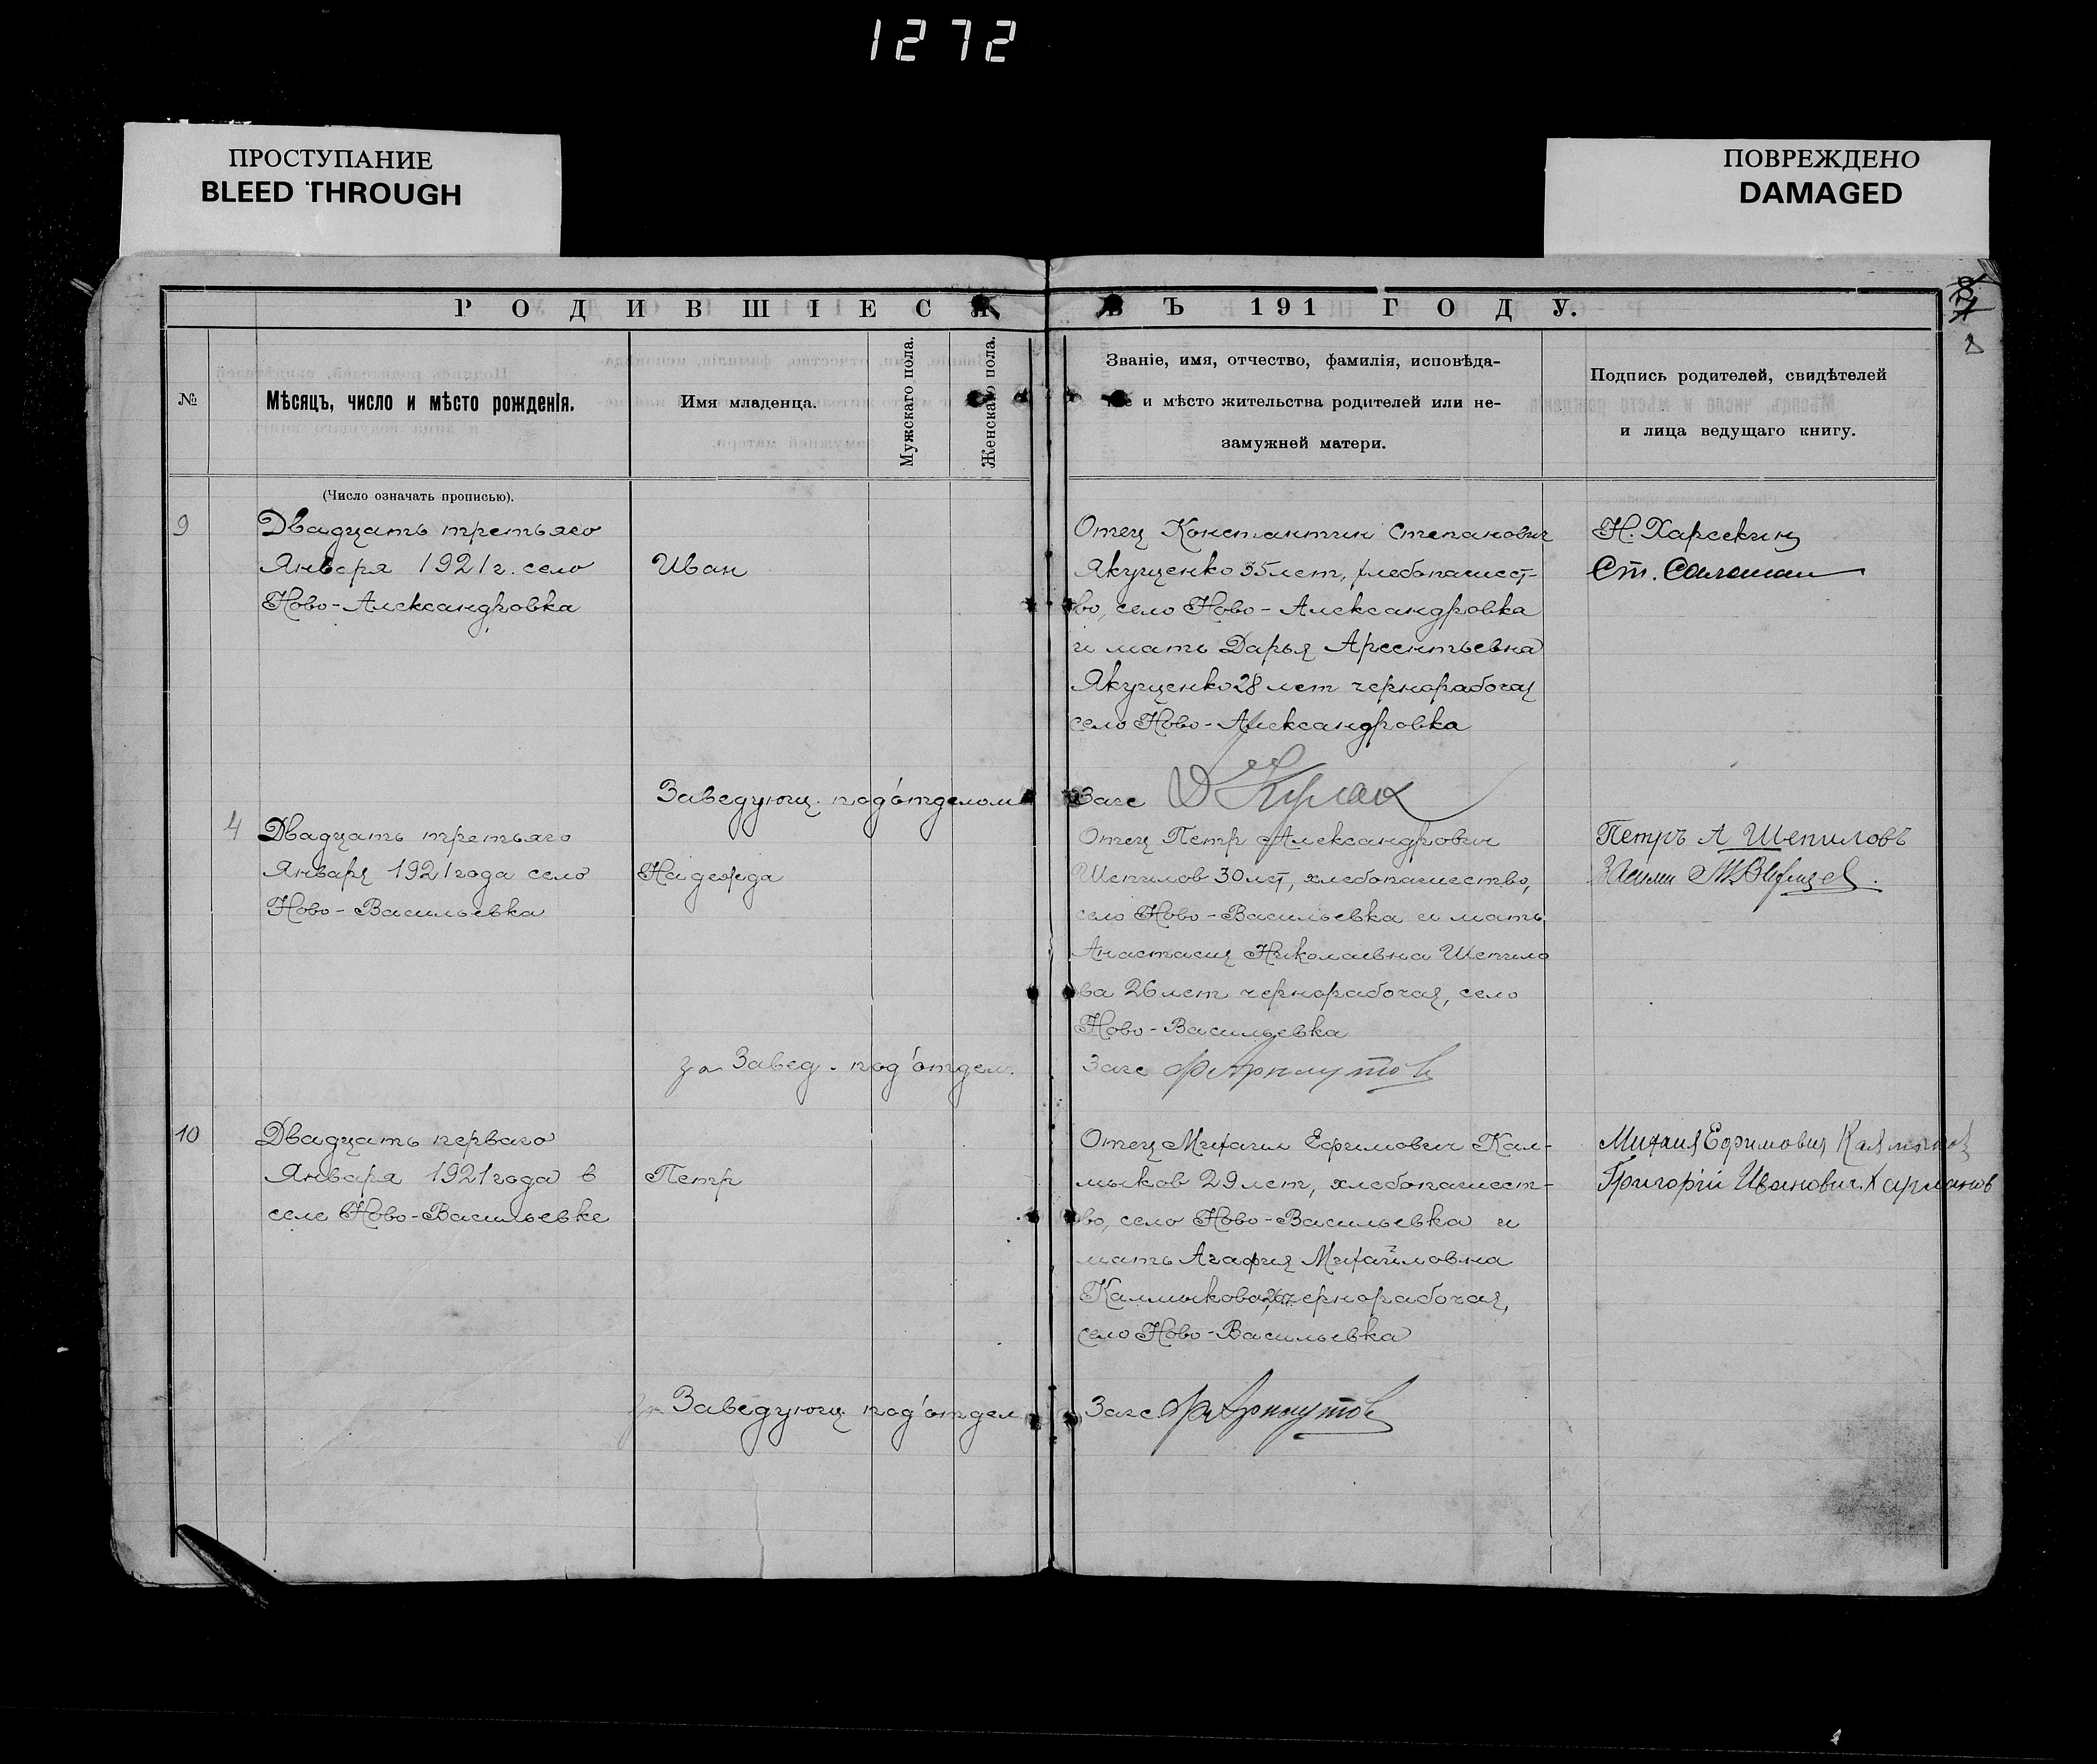 1272
ПРОСТУПАНИЕ
BLEED THROUGH
ПОВРЕЖДЕНО
DAMAGED
РОДИВШІЕСЯ ВЪ 191 ГОДУ.
№
Мѣсяцъ, число и мѣсто рожденія.
Имя младенца.
Мужскаго пола.
Женскаго пола.
Званіе, имя, отчество, фамилія, исповѣда-
ніе и мѣсто жительства родителей или не-
замужней матери.
Подпись родителей, свидѣтелей
и лица ведущаго книгу.
(Число означать прописью).
9
Двадцать третьяго
Января 1921 г. село
Ново-Александровка
Иван
Отец Константин Степанович
Якущенко 35 лет, хлебопашест-
во, село Ново-Александровка
и мать Дарья Арсентьевна
Якущенко 28 лет чернорабочая
село Ново-Александровка
Н. Харсекин
Ст.
Заведующ. под'отделом Загс
4
Двадцать третьяго
Января 1921 года село
Ново-Васильевка
Надежда
Отец Петр Александрович
Шепилов 30 лет, хлебопашество,
село Ново-Васильевка и мать
Анастасия Николаевна Шепило
ва 26 лет чернорабочая, село
Ново-Васильевка
Петръ А Шепиловъ
за Завед. под'отдел. Загс
10
Двадцать перваго
Января 1921 года в
селе Ново-Васильевке
Петр
Отец Михаил Ефимович Кал-
мыков 29 лет, хлебопашест-
во, село Ново-Васильевка и
мать Агафия Михайловна
Калмыкова, 26 л. чернорабочая,
село Ново-Васильевка
Михаил Ефимович Калмыков
Григорій Иванович Харланов
за Заведующ под'отдел Загс